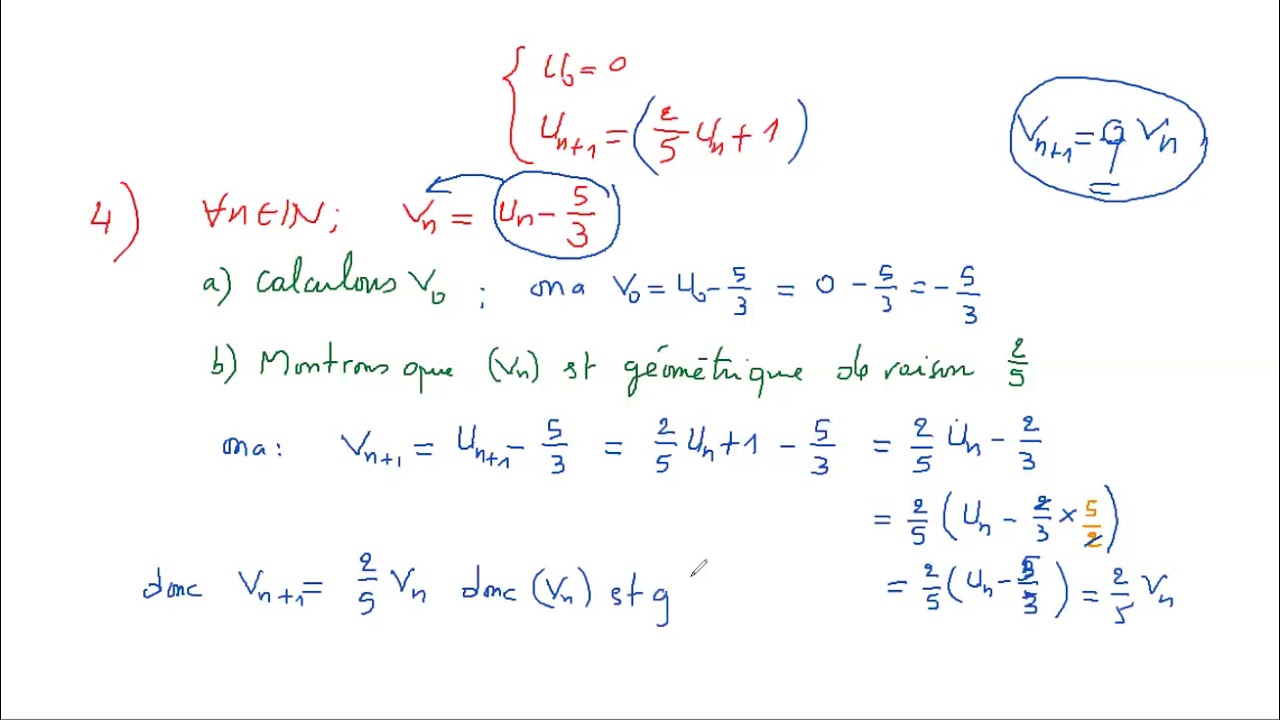 U₀ = 0
Uₙ₊₁ = (2/5 Uₙ + 1)
Vₙ₊₁ = q Vₙ
4) ∀n∈IN; Vₙ = Uₙ - 5/3
a) Calculons V₀ ; ona V₀ = U₀ - 5/3 = 0 - 5/3 = - 5/3
b) Montrons que (Vₙ) st géométrique de raison 2/5
ona: Vₙ₊₁ = Uₙ₊₁ - 5/3 = 2/5 Uₙ + 1 - 5/3 = 2/5 Uₙ - 2/3
= 2/5 (Uₙ - 2/3 × 5/2)
donc Vₙ₊₁ = 2/5 Vₙ donc (Vₙ) st g = 2/5 (Uₙ - 5/3) = 2/5 Vₙ